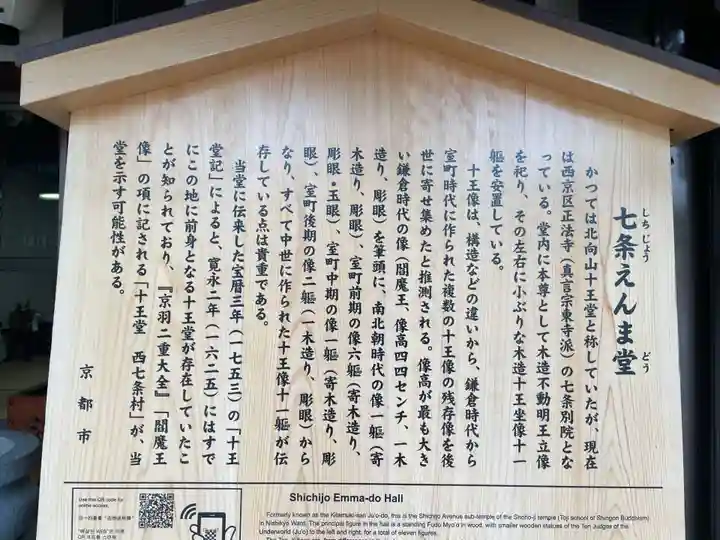 七条えんま堂
しちじょう
どう
かつては北向山十王堂と称していたが、現在
は西京区正法寺（真言宗東寺派）の七条別院とな
っている。堂内に本尊として木造不動明王立像
を祀り、その左右に小ぶりな木造十王坐像十一
軀を安置している。
十王像は、構造などの違いから、鎌倉時代から
室町時代に作られた複数の十王像の残存像を後
世に寄せ集めたと推測される。像高が最も大き
い鎌倉時代の像（閻魔王、像高四四センチ、一木
造り、彫眼）を筆頭に、南北朝時代の像一軀（寄
木造り、彫眼）、室町前期の像六軀（寄木造り、
彫眼・玉眼）、室町中期の像一軀（寄木造り、彫
眼）、室町後期の像二軀（一木造り、彫眼）から
なり、すべて中世に作られた十王像十一軀が伝
存している点は貴重である。
当堂に伝来した宝暦三年（一七五三）の「十王
堂記」によると、寛永二年（一六二五）にはすで
にこの地に前身となる十王堂が存在していたこ
とが知られており、『京羽二重大全』「閻魔王
像」の項に記される「十王堂 西七条村」が、当
堂を示す可能性がある。
京都市
Shichijo Emma-do Hall
Formerly known as the Kitamuki-san Ju'o-do, this is the Shichijo Avenue sub-temple of the Shoho-ji temple (Toji school of Shingon Buddhism)
in Nishikyo Ward. The principal figure in the hall is a standing Fudo Myo'o in wood, with smaller wooden statues of the Ten Judges of the
Underworld (Ju'o) to the left and right, for a total of eleven figures.
Use this QR code for